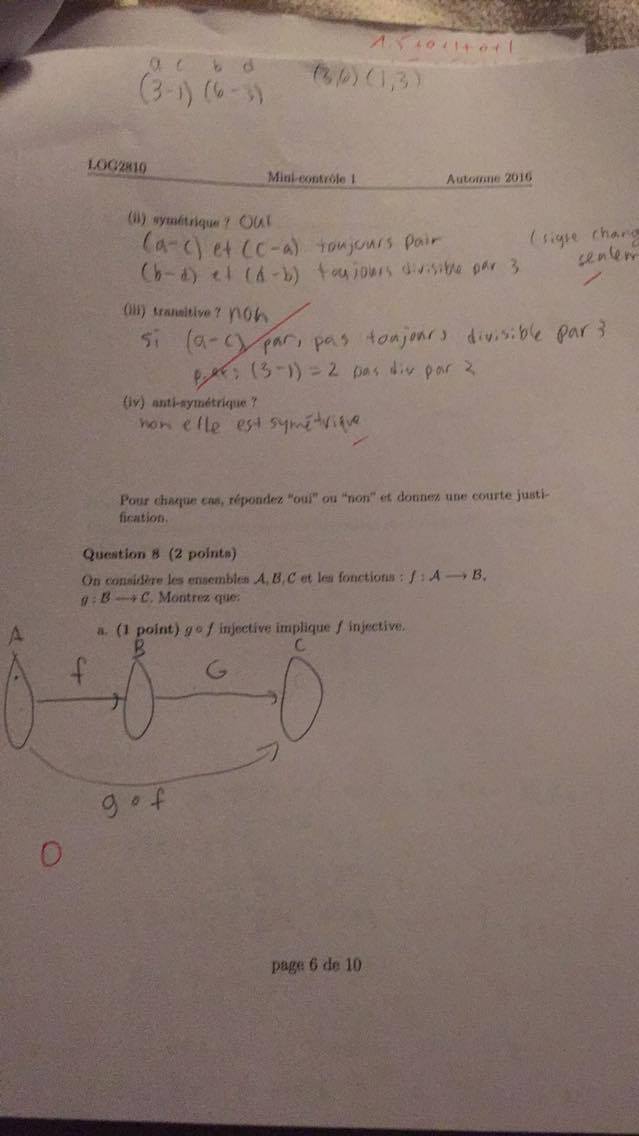 1.5+0+1+0+1
a c b d
(3-1) (6-3) (3,6) (1,3)
LOG2810 Mini-contrôle 1 Automne 2016
(ii) symétrique ? oui
(a-c) et (c-a) toujours pair (signe chang
(b-d) et (d-b) toujours divisible par 3 seulem
(iii) transitive ? non
si (a-c) pair, pas toujours divisible par 3
p.ex: (3-1) = 2 pas div par
(iv) anti-symétrique ?
non elle est symétrique
Pour chaque cas, répondez “oui” ou “non” et donnez une courte justi-
fication.
Question 8 (2 points)
On considère les ensembles A, B, C et les fonctions : f : A ⟶ B,
g : B ⟶ C. Montrez que:
a. (1 point) g ∘ f injective implique f injective.
A B C
f G
g ∘ f
0
page 6 de 10